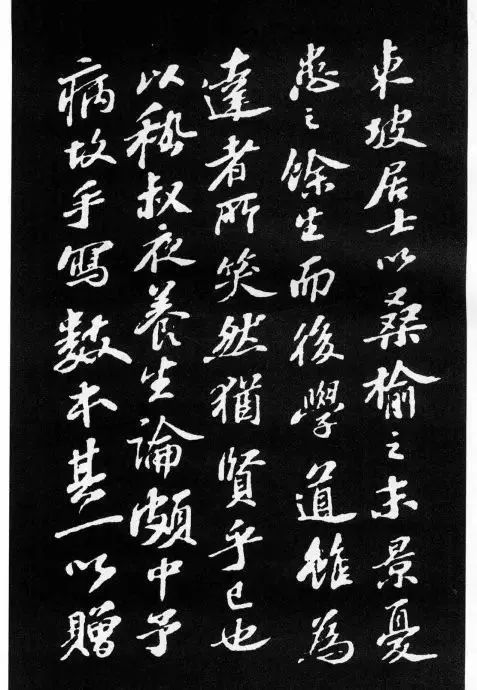 東坡居士以桑榆之末景憂
患之餘生而後學道雖為
達者所笑然猶賢乎已也
以嵇叔夜養生論頗中予
病故手寫數本其一以贈